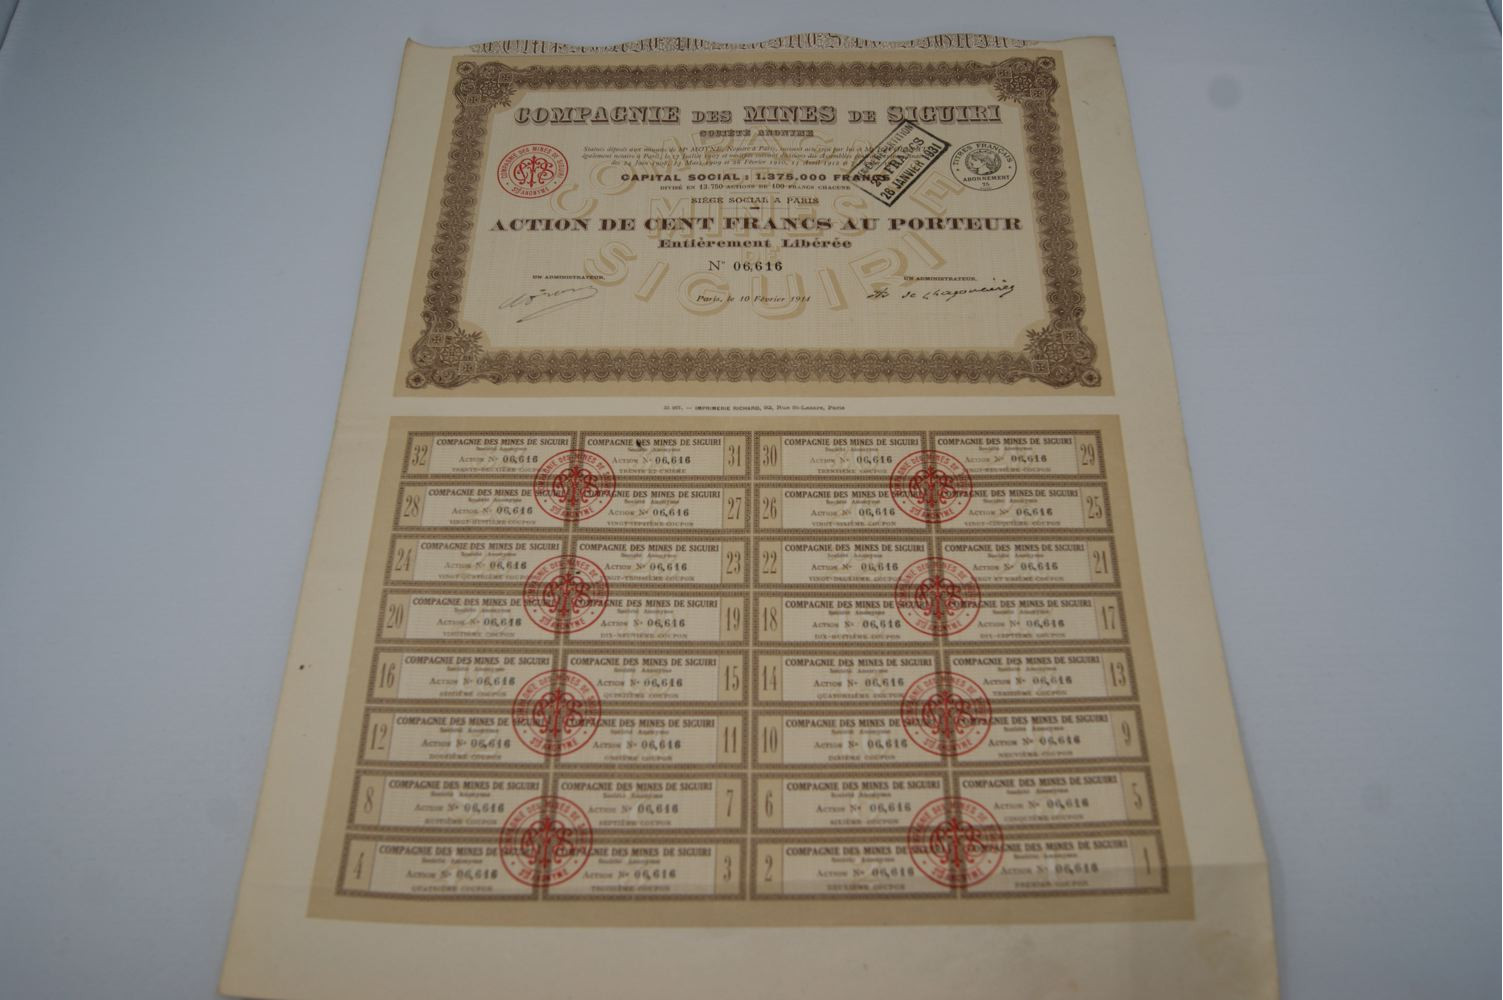 COMPAGNIE DES MINES DE SIGUIRI
SOCIÉTÉ ANONYME
Statuts déposés aux minutes de Me MOYNE, Notaire à Paris,
également notaire à Paris, le 17 Juillet 1907 et
CAPITAL SOCIAL : 1.375.000 FRANCS
DIVISÉ EN 13.750 ACTIONS DE 100 FRANCS CHACUNE
SIÈGE SOCIAL A PARIS
ACTION DE CENT FRANCS AU PORTEUR
Entièrement Libérée
No 06,616
UN ADMINISTRATEUR, UN ADMINISTRATEUR,
Paris, le 10 Février 1911
COMPAGNIE DES MINES DE SIGUIRI
Sté ANONYME
20 FRANCS
28 JANVIER 1931
TITRES FRANÇAIS
ABONNEMENT
75
COMPAGNIE
MINES
DE
SIGUIRI
IMPRIMERIE RICHARD, 92, Rue St-Lazare, Paris
32 COMPAGNIE DES MINES DE SIGUIRI
Société Anonyme
Action No 06,616
TRENTE-DEUXIÈME COUPON
COMPAGNIE DES MINES DE SIGUIRI 31
Société Anonyme
Action No 06,616
TRENTE ET UNIÈME
30 COMPAGNIE DES MINES DE SIGUIRI
Société Anonyme
Action No 06,616
TRENTIÈME COUPON
COMPAGNIE DES MINES DE SIGUIRI 29
Société Anonyme
Action No 06,616
VINGT-NEUVIÈME COUPON
28 COMPAGNIE DES MINES DE SIGUIRI
Société Anonyme
Action No 06,616
VINGT-HUITIÈME COUPON
COMPAGNIE DES MINES DE SIGUIRI 27
Société Anonyme
Action No 06,616
VINGT-SEPTIÈME COUPON
26 COMPAGNIE DES MINES DE SIGUIRI
Société Anonyme
Action No 06,616
VINGT-SIXIÈME COUPON
COMPAGNIE DES MINES DE SIGUIRI 25
Société Anonyme
Action No 06,616
VINGT-CINQUIÈME COUPON
24 COMPAGNIE DES MINES DE SIGUIRI
Société Anonyme
Action No 06,616
VINGT-QUATRIÈME COUPON
COMPAGNIE DES MINES DE SIGUIRI 23
Société Anonyme
Action No 06,616
VINGT-TROISIÈME COUPON
22 COMPAGNIE DES MINES DE SIGUIRI
Société Anonyme
Action No 06,616
VINGT-DEUXIÈME COUPON
COMPAGNIE DES MINES DE SIGUIRI 21
Société Anonyme
Action No 06,616
VINGT ET UNIÈME COUPON
20 COMPAGNIE DES MINES DE SIGUIRI
Société Anonyme
Action No 06,616
VINGTIÈME COUPON
COMPAGNIE DES MINES DE SIGUIRI 19
Société Anonyme
Action No 06,616
DIX-NEUVIÈME COUPON
18 COMPAGNIE DES MINES DE SIGUIRI
Société Anonyme
Action No 06,616
DIX-HUITIÈME COUPON
COMPAGNIE DES MINES DE SIGUIRI 17
Société Anonyme
Action No 06,616
DIX-SEPTIÈME COUPON
16 COMPAGNIE DES MINES DE SIGUIRI
Société Anonyme
Action No 06,616
SEIZIÈME COUPON
COMPAGNIE DES MINES DE SIGUIRI 15
Société Anonyme
Action No 06,616
QUINZIÈME COUPON
14 COMPAGNIE DES MINES DE SIGUIRI
Société Anonyme
Action No 06,616
QUATORZIÈME COUPON
COMPAGNIE DES MINES DE SIGUIRI 13
Société Anonyme
Action No 06,616
TREIZIÈME COUPON
12 COMPAGNIE DES MINES DE SIGUIRI
Société Anonyme
Action No 06,616
DOUZIÈME COUPON
COMPAGNIE DES MINES DE SIGUIRI 11
Société Anonyme
Action No 06,616
ONZIÈME COUPON
10 COMPAGNIE DES MINES DE SIGUIRI
Société Anonyme
Action No 06,616
DIXIÈME COUPON
COMPAGNIE DES MINES DE SIGUIRI 9
Société Anonyme
Action No 06,616
NEUVIÈME COUPON
8 COMPAGNIE DES MINES DE SIGUIRI
Société Anonyme
Action No 06,616
HUITIÈME COUPON
COMPAGNIE DES MINES DE SIGUIRI 7
Société Anonyme
Action No 06,616
SEPTIÈME COUPON
6 COMPAGNIE DES MINES DE SIGUIRI
Société Anonyme
Action No 06,616
SIXIÈME COUPON
COMPAGNIE DES MINES DE SIGUIRI 5
Société Anonyme
Action No 06,616
CINQUIÈME COUPON
4 COMPAGNIE DES MINES DE SIGUIRI
Société Anonyme
Action No 06,616
QUATRIÈME COUPON
COMPAGNIE DES MINES DE SIGUIRI 3
Société Anonyme
Action No 06,616
TROISIÈME COUPON
2 COMPAGNIE DES MINES DE SIGUIRI
Société Anonyme
Action No 06,616
DEUXIÈME COUPON
COMPAGNIE DES MINES DE SIGUIRI 1
Société Anonyme
Action No 06,616
PREMIER COUPON